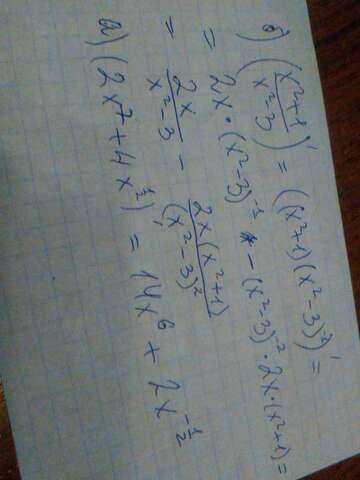 б) ((x²+1)/(x²-3))' = ((x²+1)(x²-3)⁻¹)' =
= 2x·(x²-3)⁻¹ - (x²-3)⁻²·2x·(x²+1) =
= 2x/(x²-3) - 2x(x²+1)/(x²-3)²
а) (2x⁷+4x^(1/2))' = 14x⁶ + 2x^(-1/2)